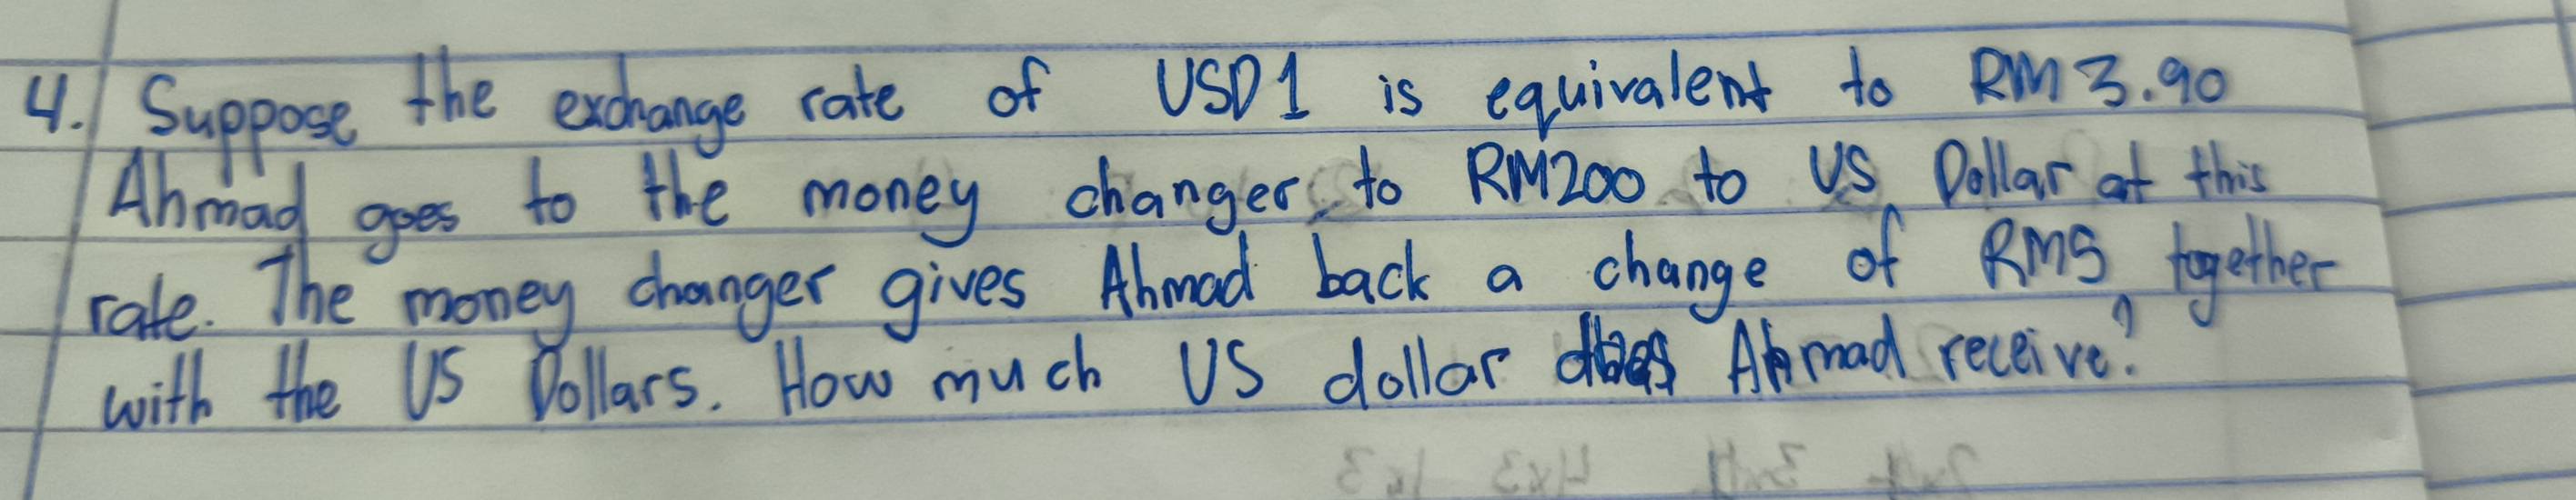 4. Suppose the exchange rate of USD1 is equivalent to RM3.90
Ahmad goes to the money changer to RM200 to US Dollar at this
rate. The money changer gives Ahmad back a change of RM5 together
with the US Dollars. How much US dollar does Ahmad receive?